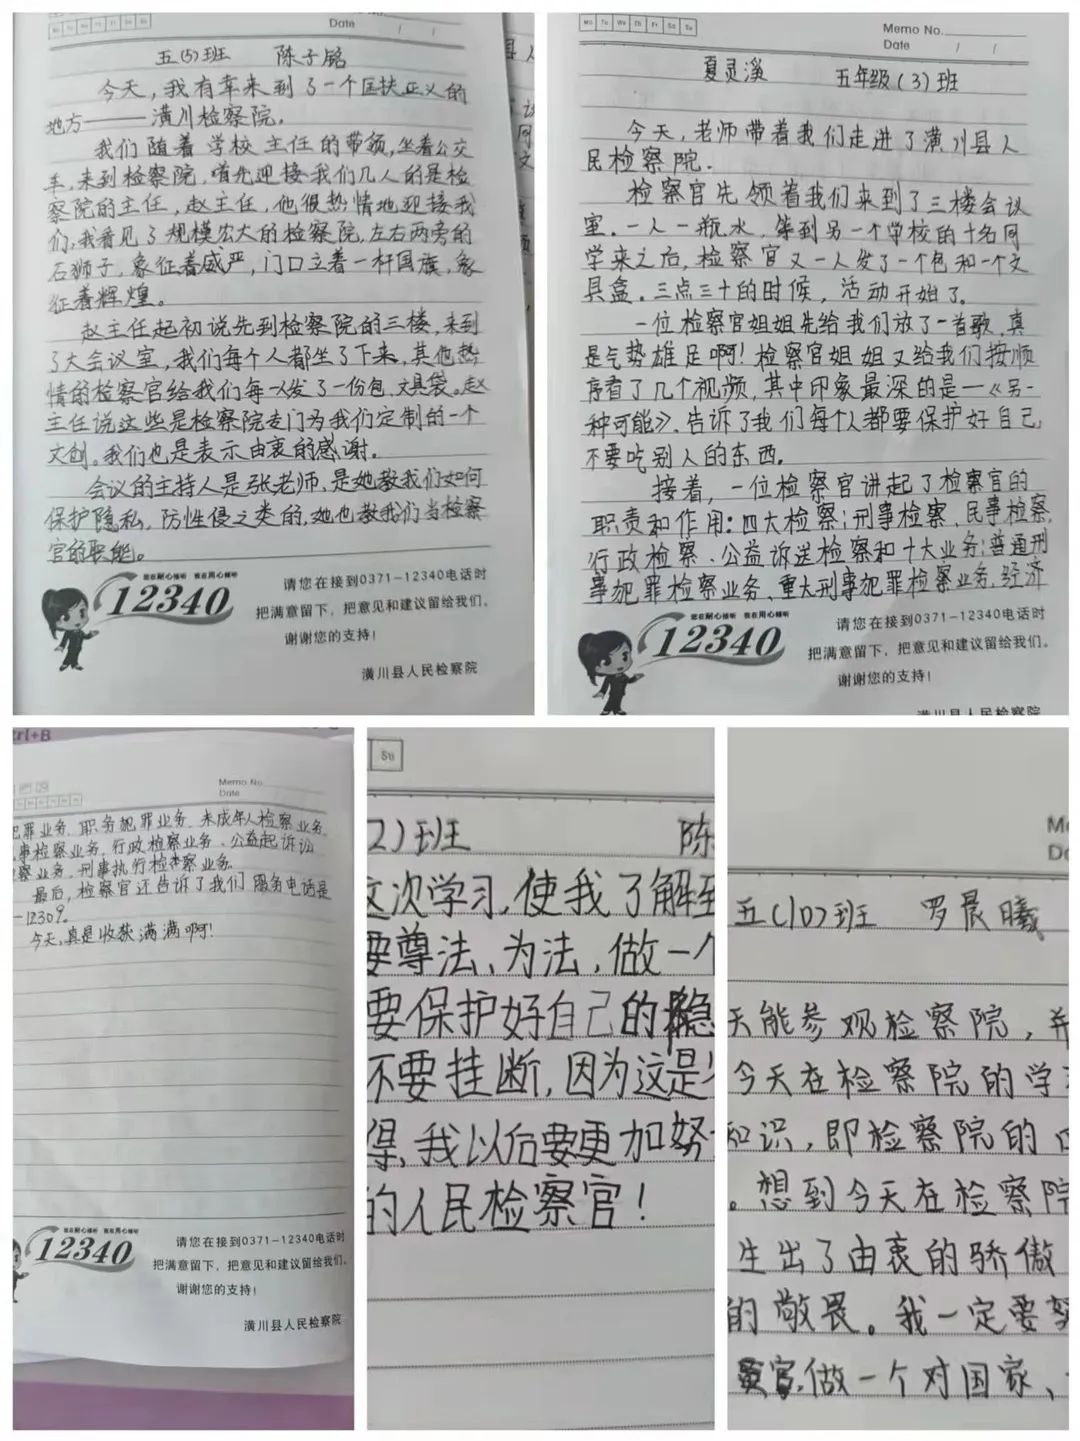 Memo No.
Date / /
五(5)班 陈子铭
今天,我有幸来到了一个匡扶正义的
地方——潢川检察院。
我们随着学校主任的带领,坐着公交
车,来到检察院,首先迎接我们几人的是检
察院的主任,赵主任,他很热情地迎接我
们,我看见了规模宏大的检察院,左右两旁的
石狮子,象征着威严,门口立着一杆国旗,象
征着辉煌。
赵主任起初说先到检察院的三楼,来到
了大会议室,我们每个人都坐了下来,其他热
情的检察官给我们每人发了一份包,文具袋。赵
主任说这些是检察院专门为我们定制的一个
文创。我们也是表示由衷的感谢。
会议的主持人是张老师,是她教我们如何
保护隐私,防性侵之类的,她也教我们当检察
官的职能。
您在耐心倾听 我在用心倾听
12340
请您在接到0371-12340电话时
把满意留下,把意见和建议留给我们。
谢谢您的支持!
潢川县人民检察院
Mo Tu We Th Fr Sa Su
Memo No.
Date / /
夏灵溪 五年级(3)班
今天,老师带着我们走进了潢川县人
民检察院.
检察官先领着我们来到了三楼会议
室.一人一瓶水,等到另一个学校的十名同
学来之后,检察官又一人发了一个包和一个文
具盒.三点三十的时候,活动开始了.
一位检察官姐姐先给我们放了一首歌,真
是气势雄足啊!检察官姐姐又给我们按顺
序看了几个视频,其中印象最深的是—《另一
种可能》.告诉了我们每个人都要保护好自己,
不要吃别人的东西.
接着,一位检察官讲起了检察官的
职责和作用:四大检察;刑事检察、民事检察,
行政检察、公益诉送检察和十大业务;普通刑
事犯罪检察业务、重大刑事犯罪检察业务、经济
您在耐心倾听 我在用心倾听
12340
请您在接到0371-12340电话时
把满意留下,把意见和建议留给我们。
谢谢您的支持!
潢川县人民检察院
trl+B
Memo No
Date
犯罪业务、职务犯罪业务、未成年人检察业务、
事检察业务、行政检察业务、公益起诉讼
察业务、刑事执行检察业务.
最后,检察官还告诉了我们服务电话是
—12309.
今天,真是收获满满啊!
您在耐心倾听 我在用心倾听
12340
请您在接到0371-12340电话时
把满意留下,把意见和建议留给我们。
谢谢您的支持!
潢川县人民检察院
Su
2)班 陈
这次学习,使我了解到
要尊法、为法,做一个
要保护好自己的隐
不要挂断,因为这是
得,我以后要更加努
的人民检察官!
五(10)班 罗晨曦
天能参观检察院,并
今天在检察院的学
知识,即检察院的
。想到今天在检察院
生出了由衷的骄傲
的敬畏。我一定要努
官,做一个对国家、